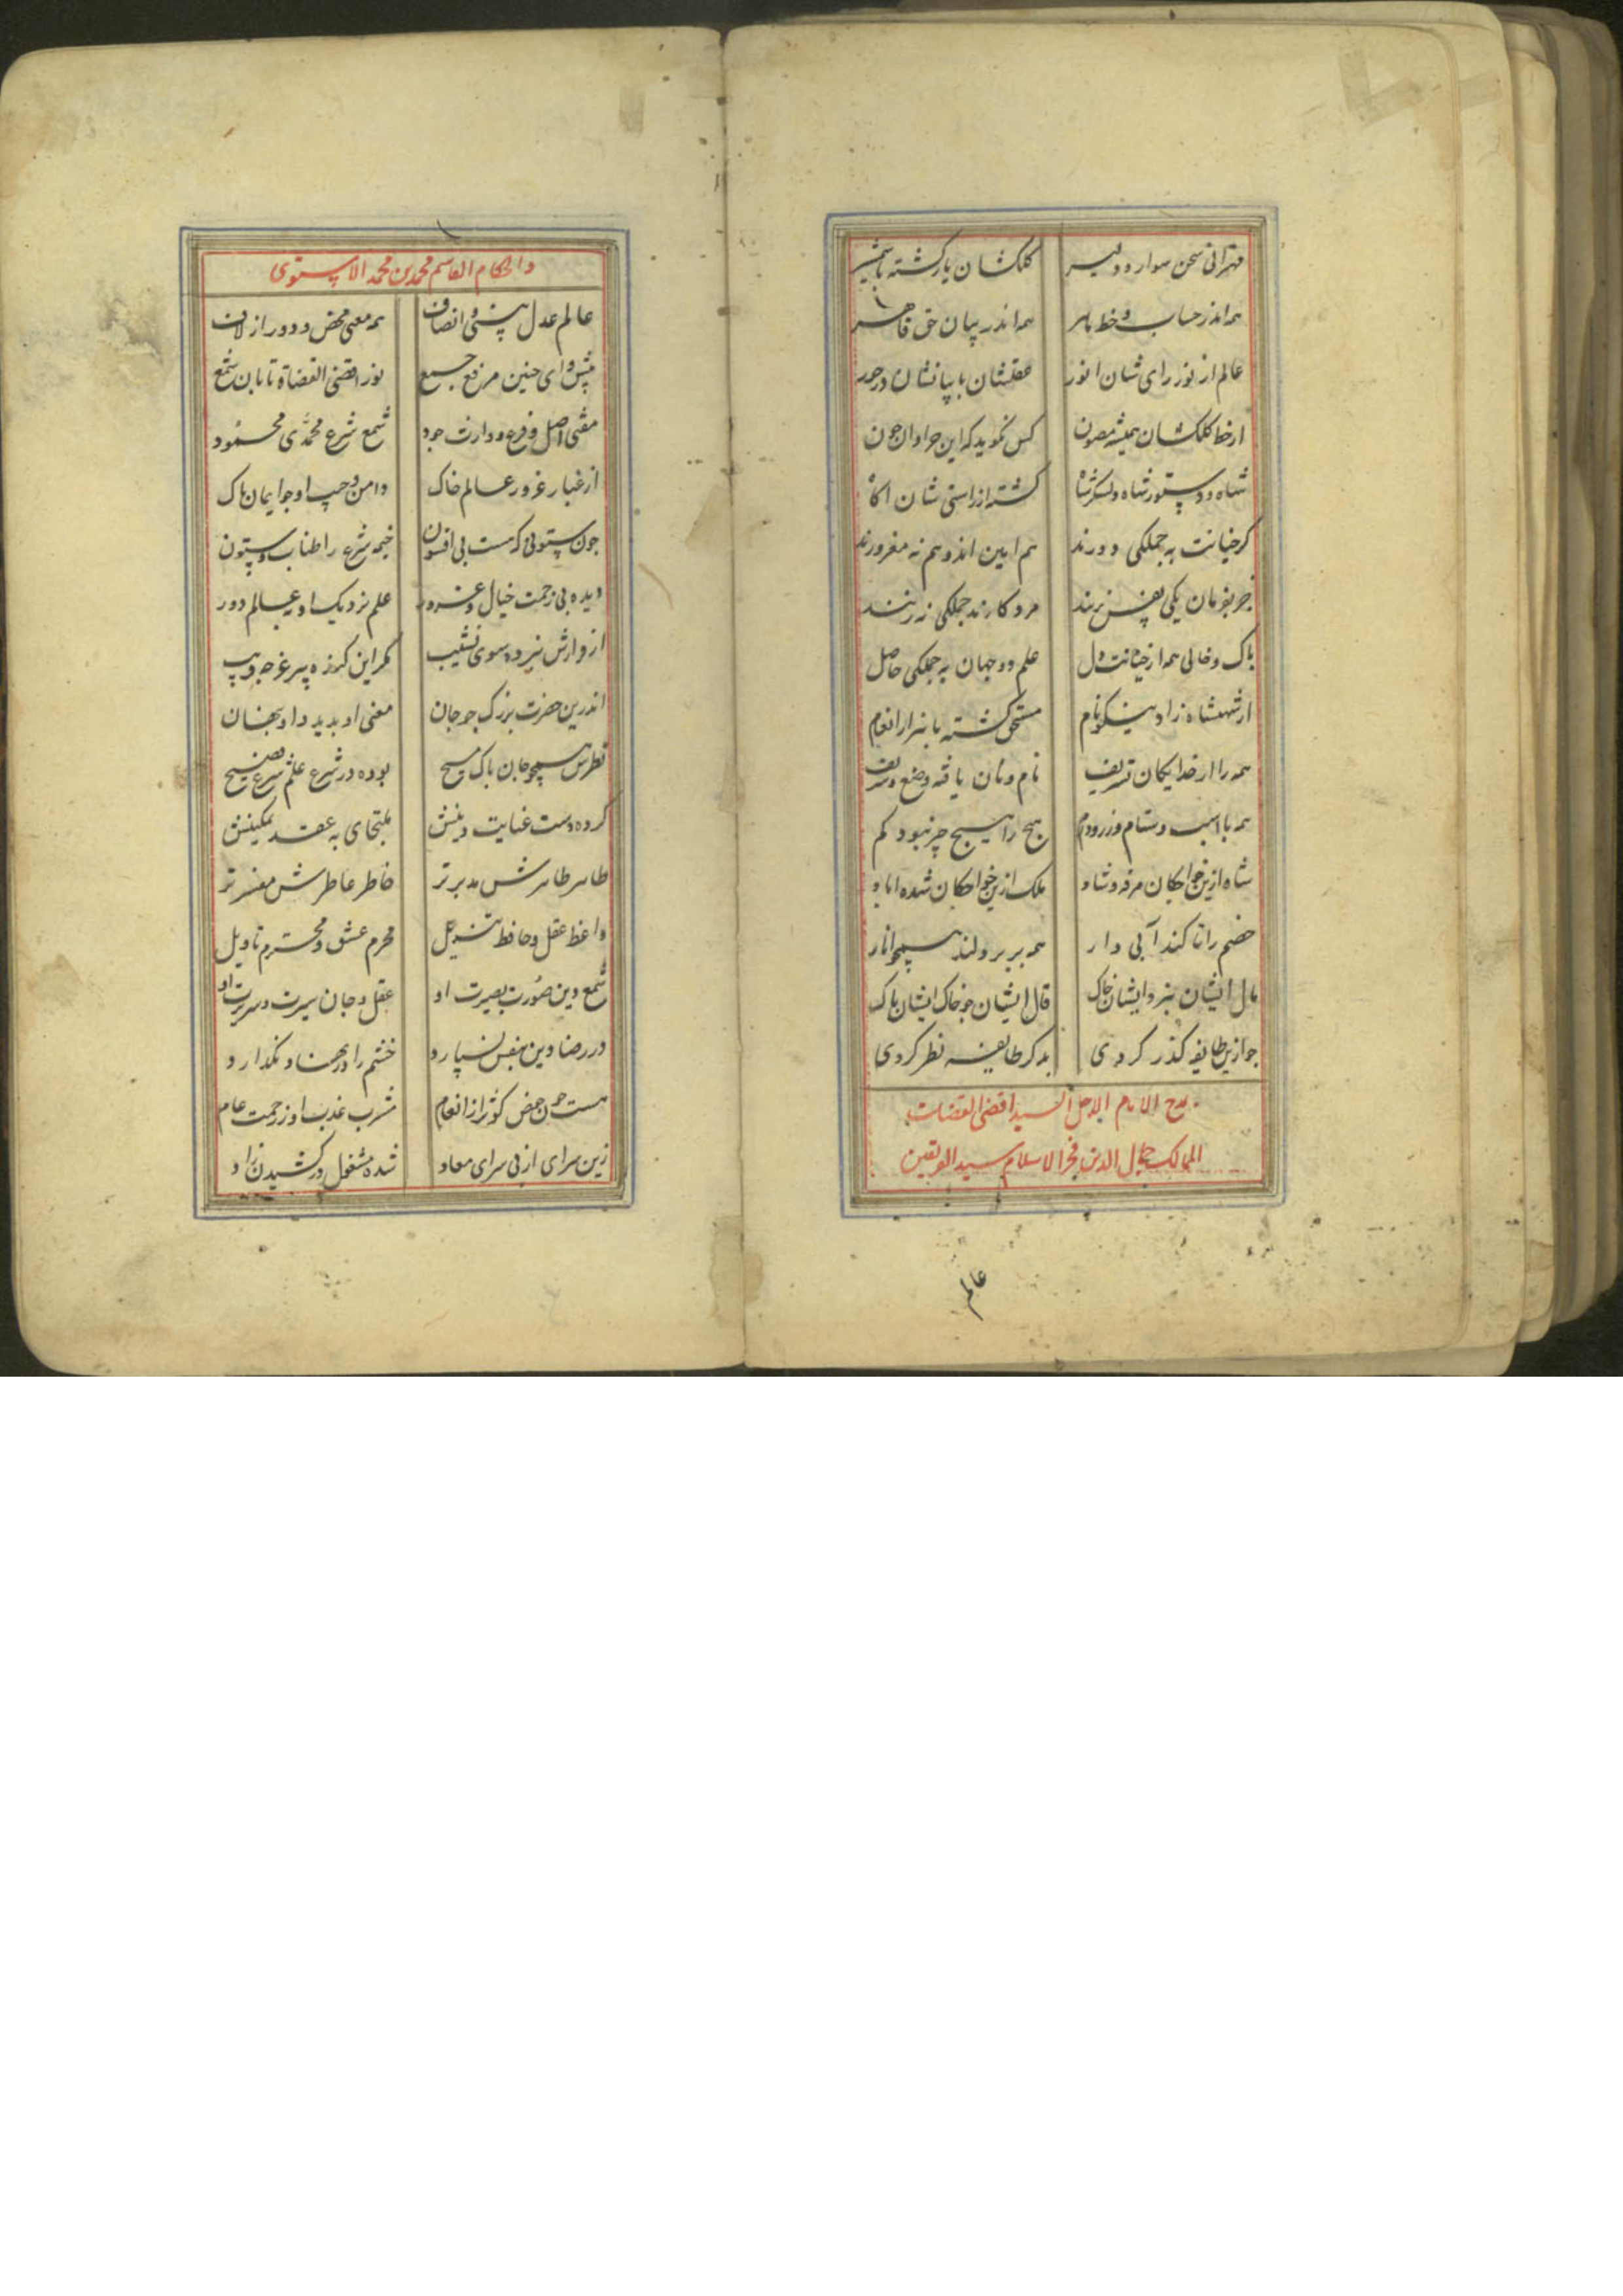 مهرانی سخن سوار و دلیر کلکشان یار کشته با شمشیر
همه اندر حساب و خط ماهر همه اندر بیان حق قاهر
عالم از نور رای شان انور عقلشان با بیانشان درخور
از خطا کلکشان همیشه مصون کس نکوید که این جرا وان جون
شاه و دستور شاه و لشکر شاه کشته از راستی شان اکاه
کر خیانت به جملکی دورند هم امین اند و هم نه مغرورند
جز بفرمان یکی نفس نزنند مرد کارند جملکی نه زنند
باک و خالی همه از خیانت دل علم دو جهان به جملکی حاصل
از شهنشاه زاد نیکو نام مستحق کشته با هزار انعام
همه را از خدایکان تشریف نام و نان یافته وضیع و شریف
همه با اسب و ستام و زر و درم هیج را هیج جیز نبود کم
شاه ازین خواجکان مرفه و شاد ملک ازین خواجکان شده اباد
خصم را تا کند آبی دار همه بربر دلند همجو انار
مال ایشان بنزد ایشان خاک قال ایشان جو خاک ایشان باک
جو ازین طایفه کذر کردی بدکر طایفه نظر کردی
مدح الامام الاجل السید اقضی القضات
الممالک جمال الدین فخر الاسلام سید الفریقین
عالم
والحکام القاسم محمد بن محمد الاستوی
عالم عدل بیشی و انصاف همه معنی محض و دور از لاف
بیشوای جنین مرفع جمع نور اقضی القضاة تابان شمع
مفتی اصل و فرع و وارث جود شمع شرع محمدی محمود
از غبار غرور عالم خاک دامن و جیب او جو ایمان باک
جون ستونی که هست بی افسون خیمه شرع را طناب و ستون
دیده بی زحمت خیال و غرور علم نزدیک او و عالم دور
از وارش نبرده سوی نشیب مکر این کنده پیر غرجه فریب
اندرین حضرت بزرک جو جان معنی او بدید و او بنهان
نظرش همجو جان باک مسیح بوده در شرع علم شرع فصیح
کرده دست عنایت دینش ملتجای به عقد تمکینش
طاهر طاهرش مدبرتر خاطر عاطرش مفسرتر
واعظ عقل و حافظ تنزیل محرم عشق و محترم تاویل
شمع دین صورت بصیرت او عقل و جان سیرت و سریرت او
در رضا دین بنفس نسپارد خشم را در نهاد نکذارد
هست جون حوض کوثر از انعام مشرب عذب او ز رحمت عام
زین سرای از بی سرای معاد شده مشغول در کشیدن زاد